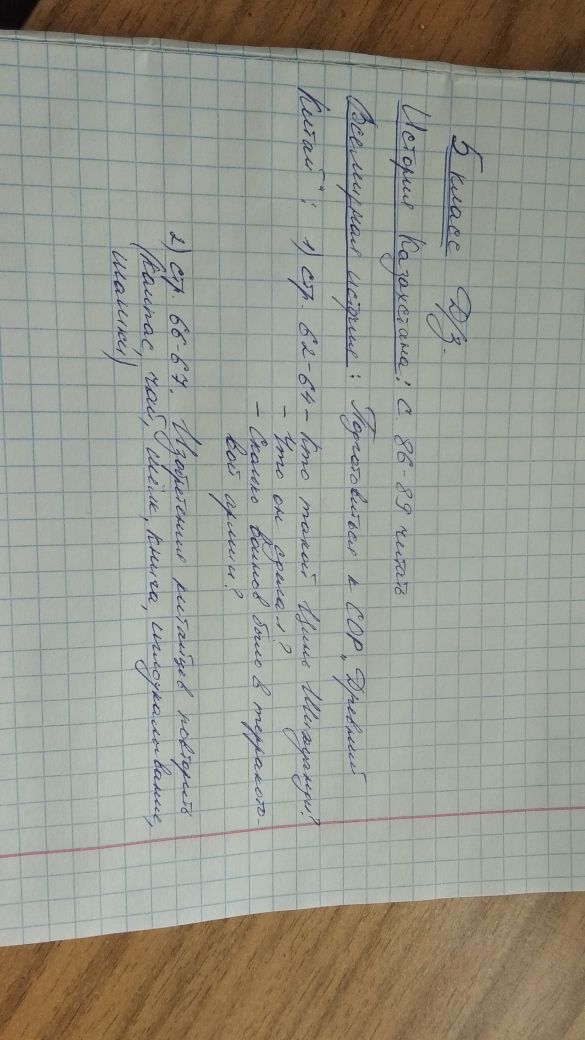 5 класс Д/З.
История Казахстана: с. 86-89 читать
Всемирная история: Подготовиться к СОР „Древний
Китай": 1) стр. 62-64 - Кто такой Цинь Шихуанди?
- Что он сделал?
- Сколько воинов было в терракото-
вой армии?
2) стр. 66-67. Изобретения китайцев повторить
(Компас, чай, шёлк, книга, иглоукалывание,
шашки)